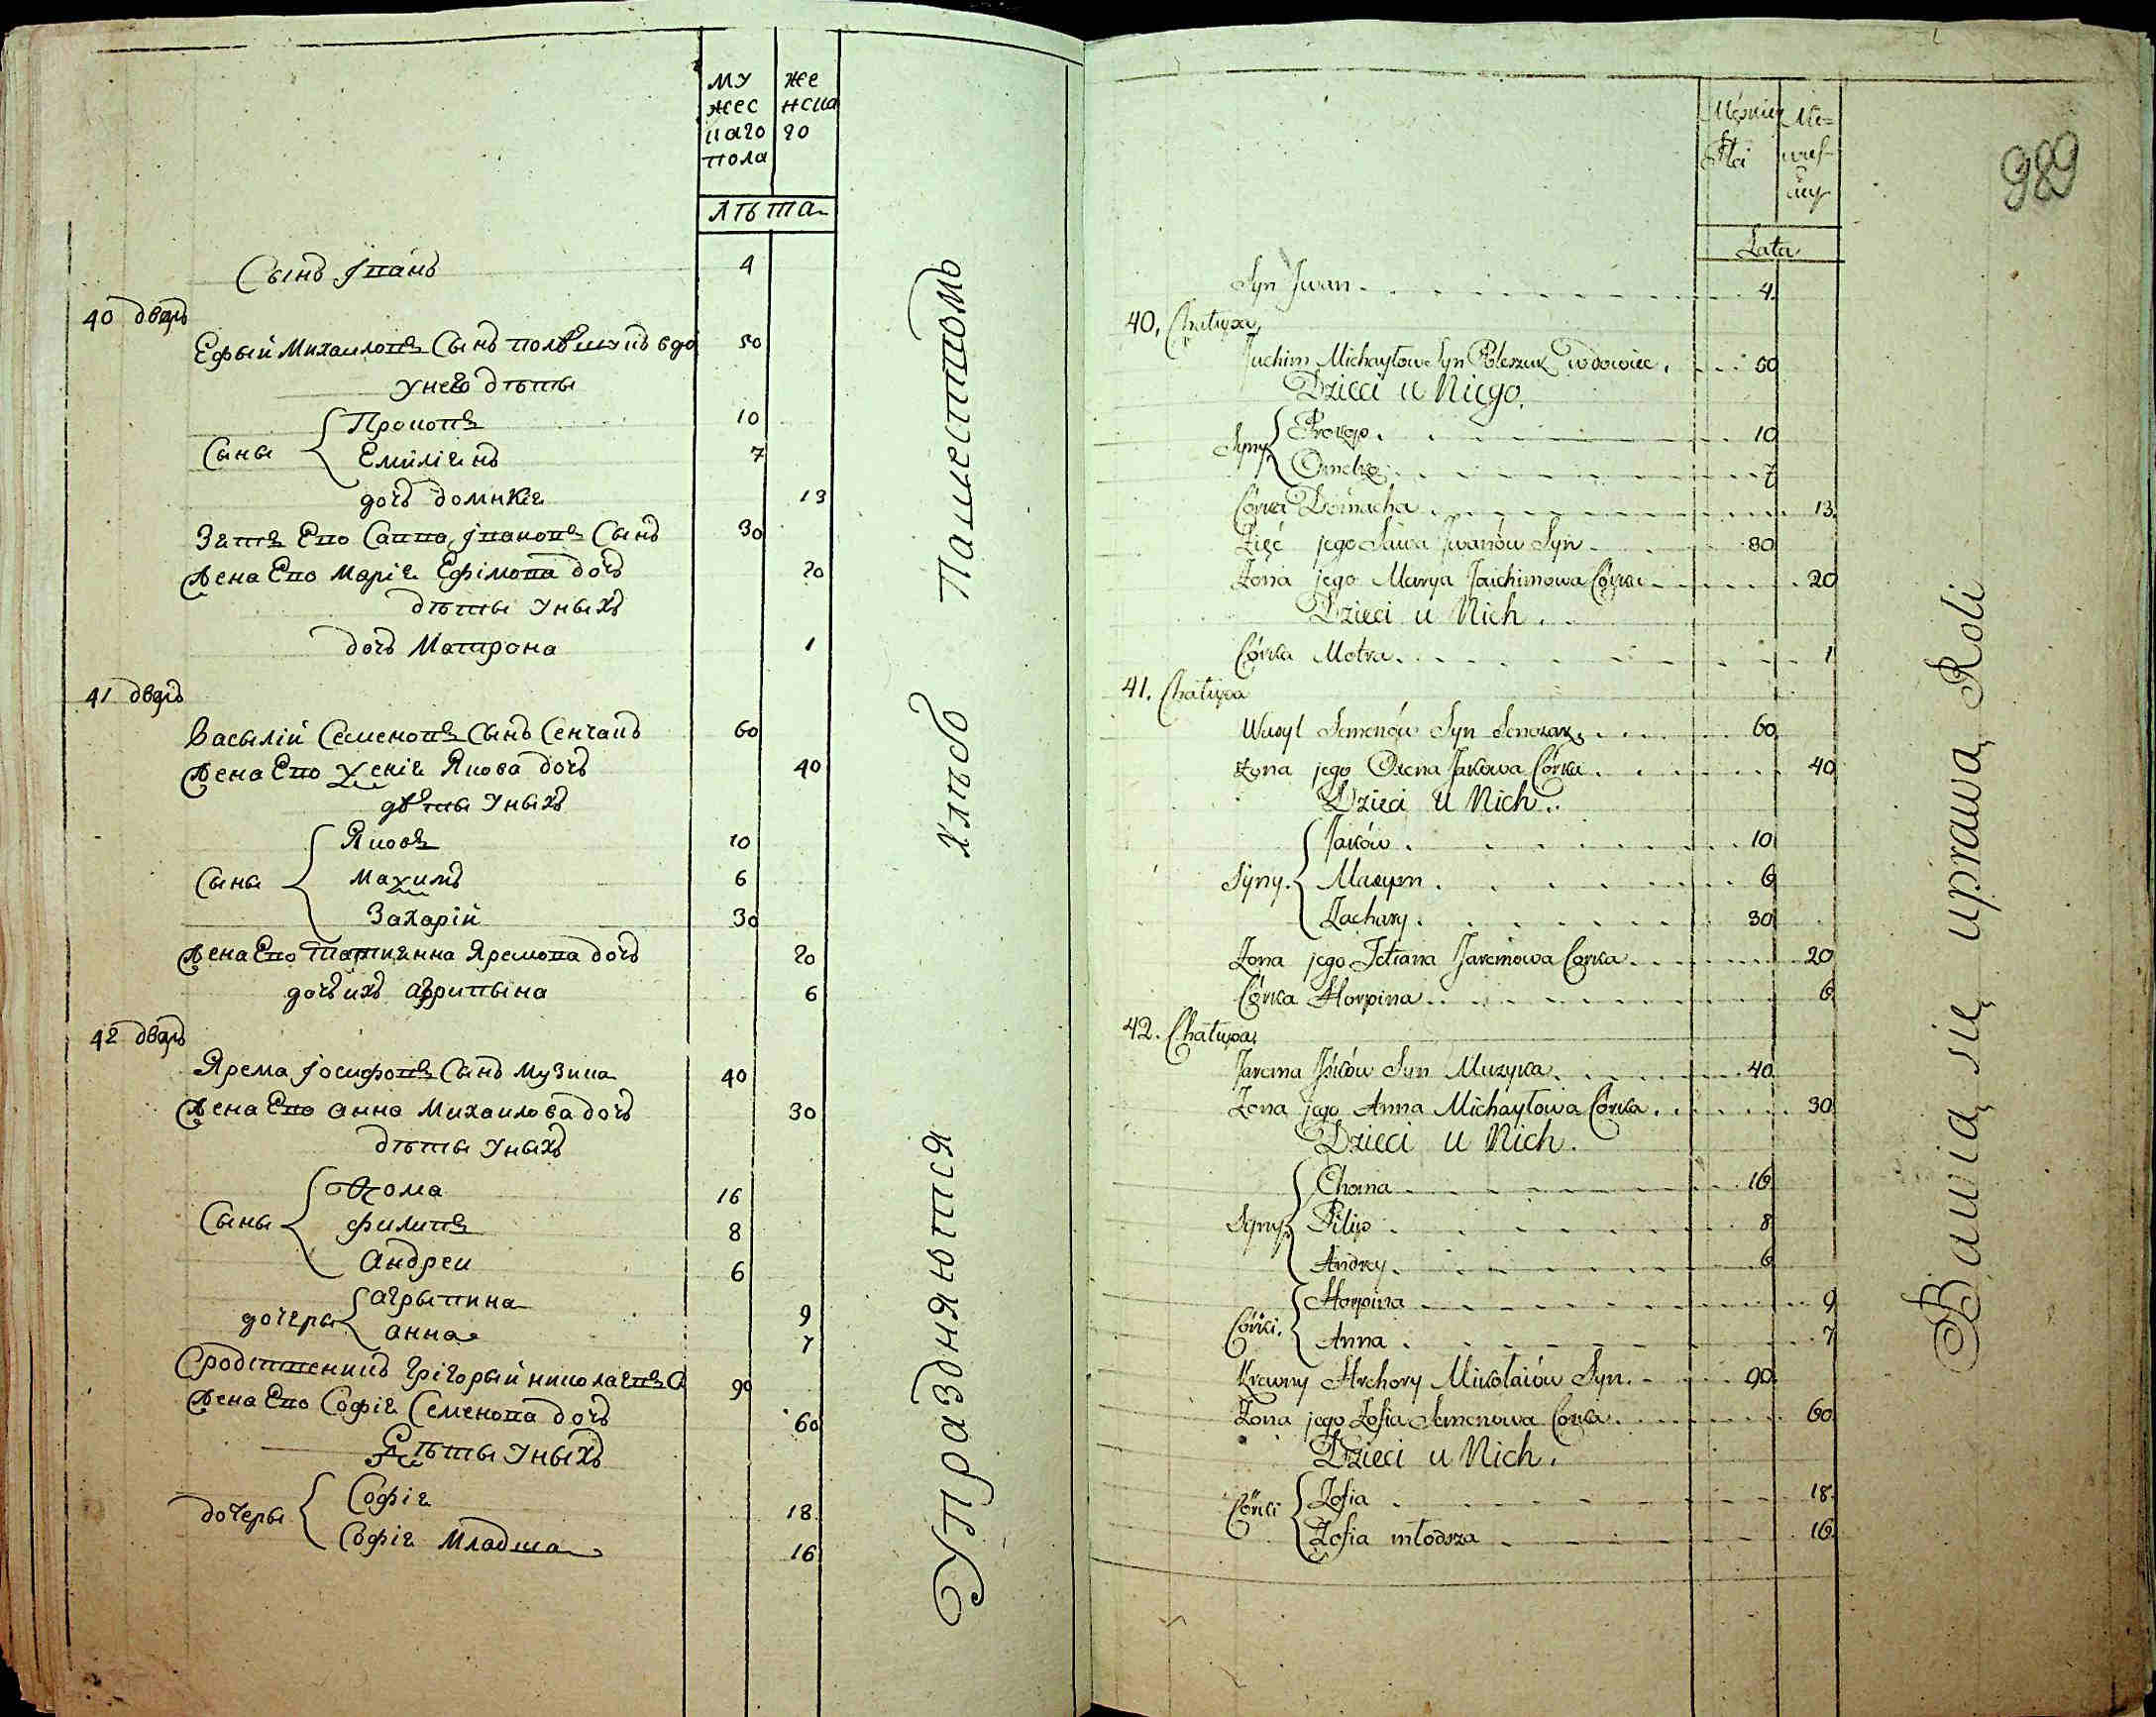 му же
жес нска
каго го
пола
лѣта
Сынъ Іванъ 4
40 дворъ
Ефый Михаиловъ Сынъ полѣшукъ вдо 50
унего дѣты
Сыны
Прокопъ 10
Емиліянъ 7
дочъ домнкія 13
Зять Его Савва, Івановъ Сынъ 30
Жена Его Марія Ефімова дочъ 20
дѣты уныхъ
дочъ Матрона 1
41 дворъ
Василій Семеновъ Сынъ Сенчакъ 60
Жена Его Ксенія Якова дочъ 40
дѣты уныхъ
Сыны
Яковъ 10
Махимъ 6
Захарій 30
Жена Его Татиянна Яремова дочъ 20
дочъ ихъ Агрипына 6
42 дворъ
Ярема Іосифовъ Сынъ Музика 40
Жена Его анна Михаилова дочъ 30
дѣты уныхъ
Сыны
Ѳома 16
Филипъ 8
Андреи 6
дочеры
агрыпина 9
анна 7
Сродственикъ Грігорый николаевъ С 90
Жена Его Софія Семенова дочъ 60
Дѣты уныхъ
дочеры
Софія 18
Софія Младша 16
Упраздняются хлѣбо Пашествомъ
989
Męskiey Nie=
Płci wieś-
ciey
Lata
Syn Jwan 4
40. Chałupa.
Juchim Michayłow Syn Poleszuk wdowiec. 50
Dzieci u Niego.
Syny
Prokop. 10
Omelko 7
Córka Domacha 13
Zięć jego Sawa Jwanów Syn 30
Żona jego Marya Jaichimowa Córka 20
Dzieci u Nich.
Córka Motra. 1
41. Chałupa
Wasyl Semenów Syn Senczak. 60
Żona jego Oxena Jakowa Córka 40
Dzieci u Nich.
Syny.
Jaków 10
Maxym 6
Zachary 30
Żona jego Tetiana Jaremowa Corka 20
Córka Horpina 6
42. Chałupa.
Jarema Jósków Syn Muzyka 40
Żona jego Anna Michayłowa Córka. 30
Dzieci u Nich.
Syny
Choma 16
Filip 8
Andrey 6
Córki.
Horpina 9
Anna 7
Krewny Hrehory Mikołaiów Syn. 90
Żona jego Zofia Semenowa Corka 60
Dzieci u Nich.
Córki
Zofia 18
Zofia młodsza 16
Bawią się uprawą Roli